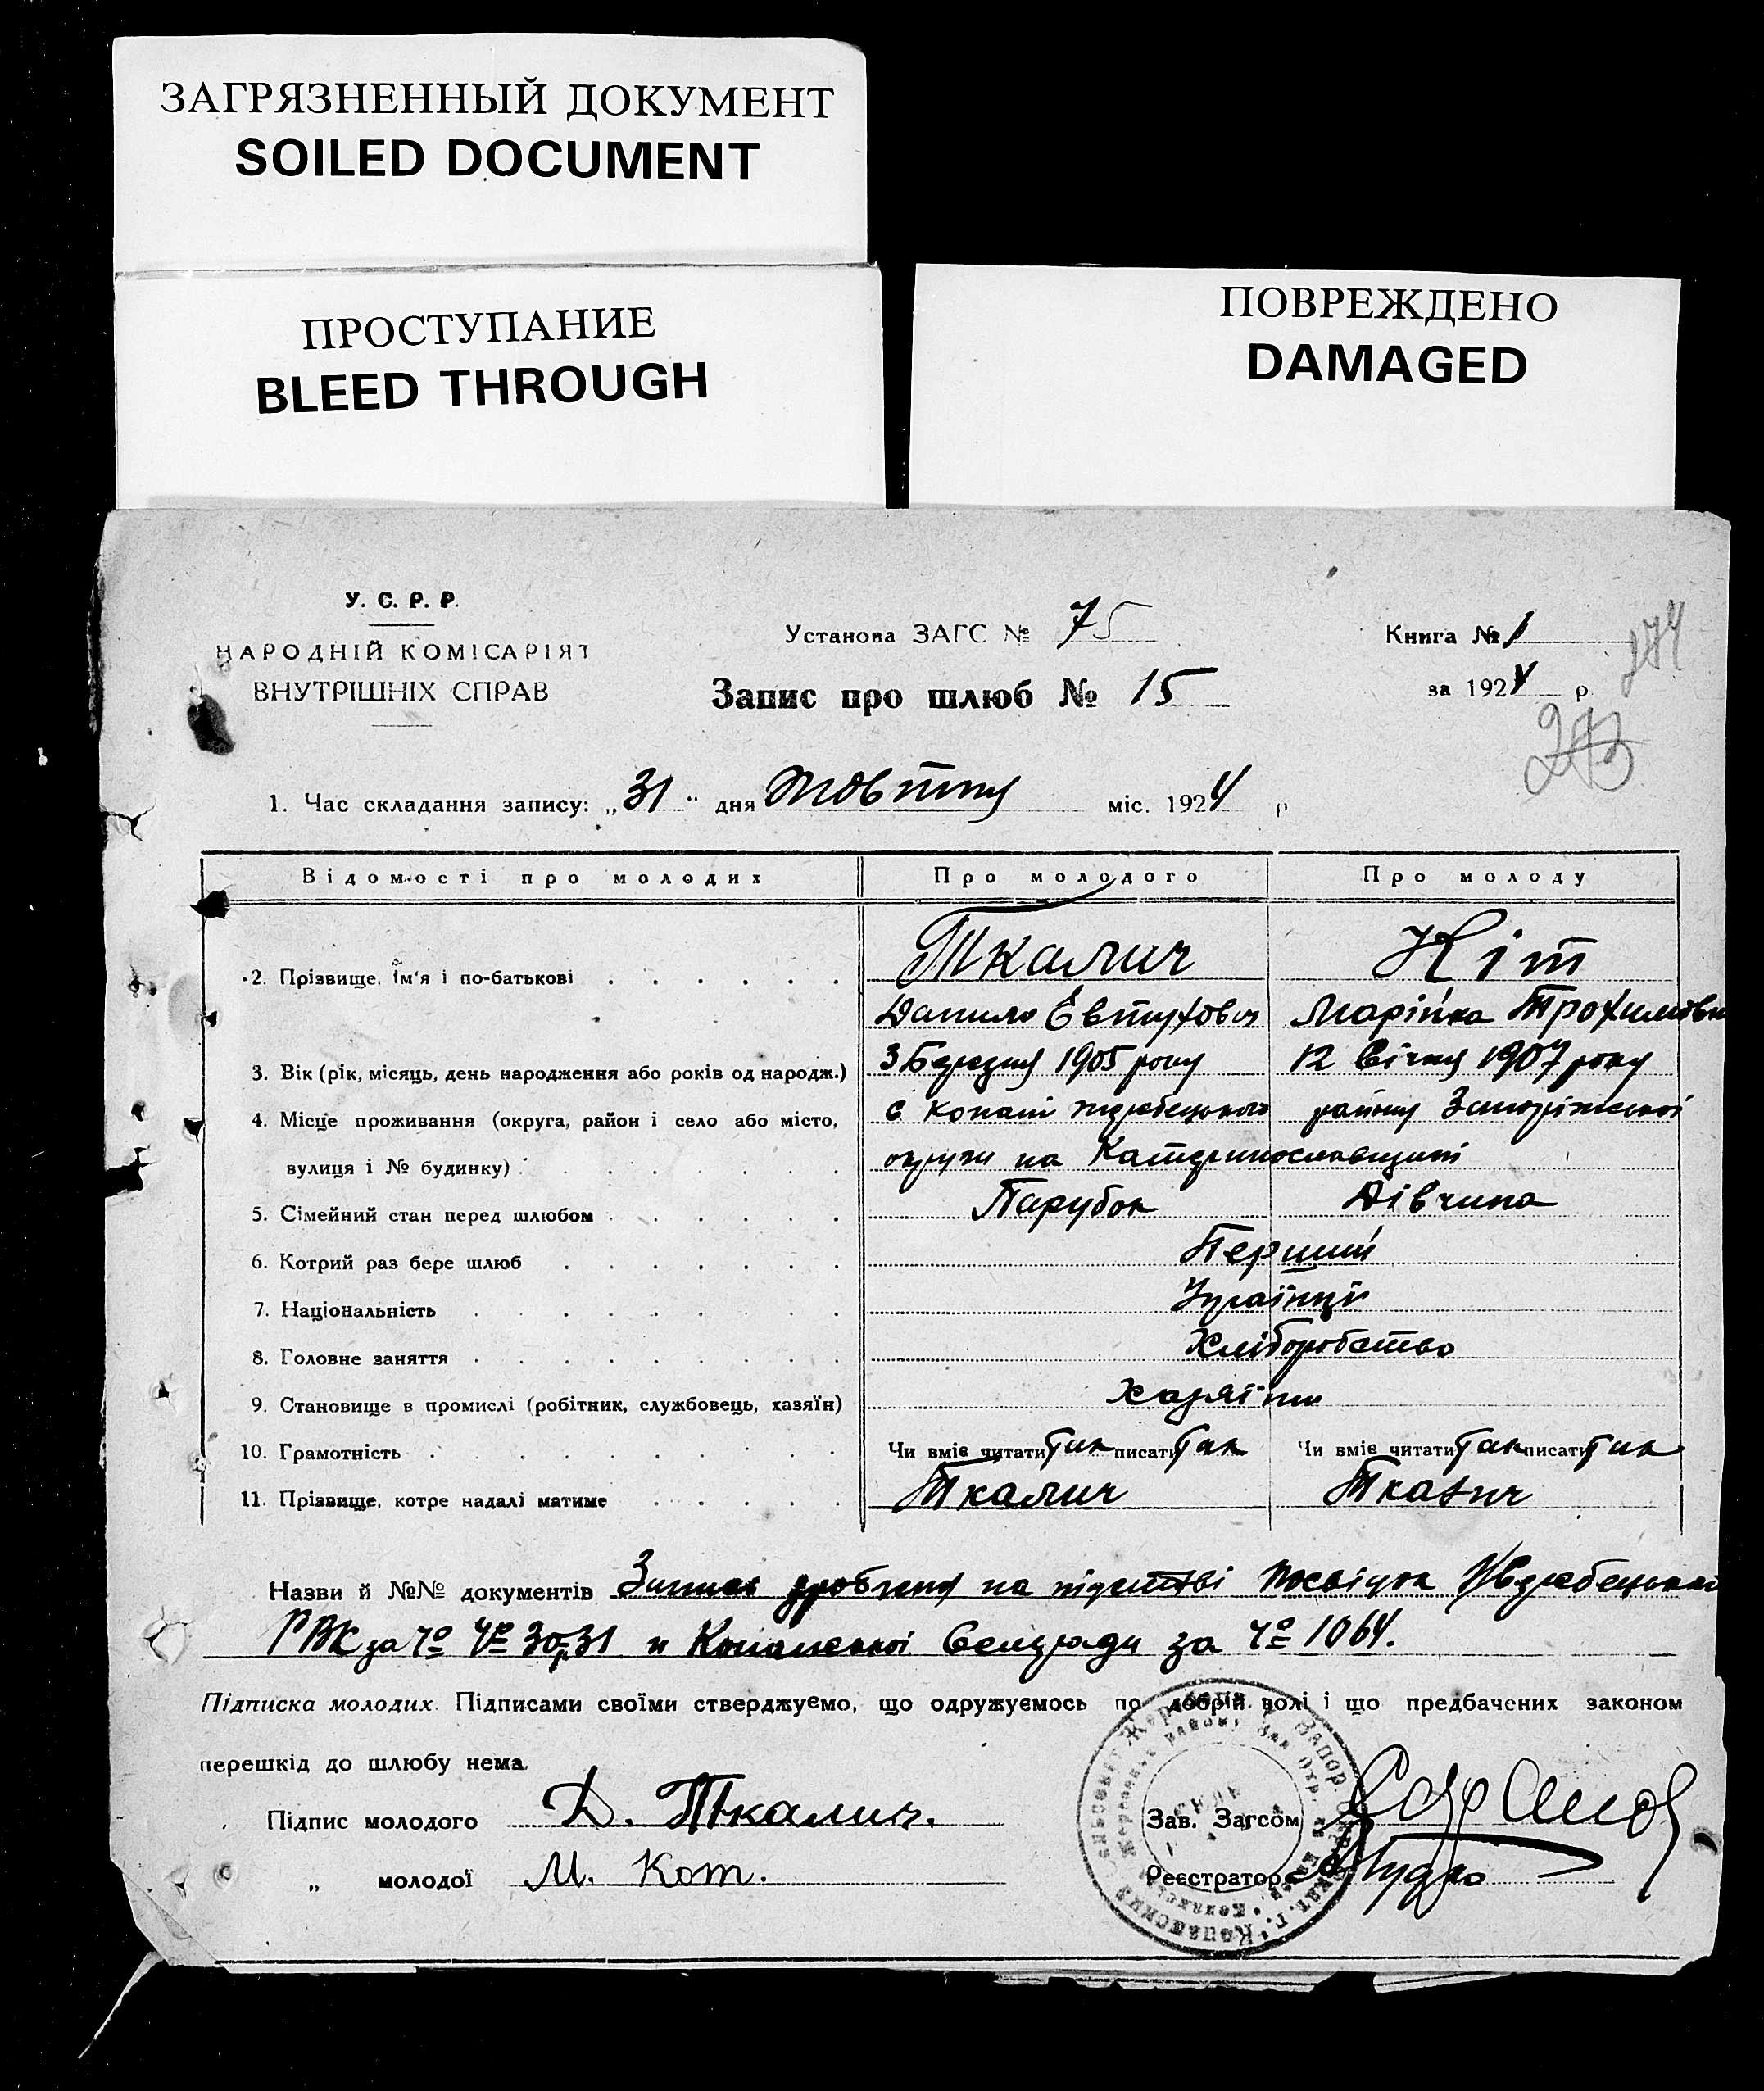 ЗАГРЯЗНЕННЫЙ ДОКУМЕНТ
SOILED DOCUMENT
ПРОСТУПАНИЕ
BLEED THROUGH
ПОВРЕЖДЕНО
DAMAGED
У. С. Р. Р.
НАРОДНІЙ КОМІСАРІЯТ
ВНУТРІШНІХ СПРАВ
Установа ЗАГС № 75
Запис про шлюб № 15
Книга № 1
за 1924 р.
274
273
1. Час складання запису: „31" дня Жовтня міс. 1924 р
Відомості про молодих Про молодого Про молоду
2. Прізвище, ім'я і по-батькові Ткалич Кіт
Данило Евтухович Марійка Трохимовна
3. Вік (рік, місяць, день народження або років од народж.) 3 Березня 1905 року 12 Січня 1907 року
4. Місце проживання (округа, район і село або місто, с Копані Жеребецького району Запоріжської
вулиця і № будинку) округи на Катеринославщині
5. Сімейний стан перед шлюбом Парубок Дівчина
6. Котрий раз бере шлюб Перший
7. Національність Українці
8. Головне заняття Хліборобство
9. Становище в промислі (робітник, службовець, хазяїн) Хазяїни
10. Грамотність Чи вміє читати так писати так Чи вміє читати так писати так
11. Прізвище, котре надалі матиме Ткалич Ткалич
Назви й №№ документів Запись зроблену на підставі посвідок Жеребецького
РВК за № № 30,31 и Копанської Сельради за № 1064.
Підписка молодих. Підписами своїми стверджуємо, що одружуємось по добрій волі і що предбачених законом
перешкід до шлюбу нема.
Підпис молодого Д. Ткалич.
„ молодої М. Кот.
Зав. Загсом
Реєстратор